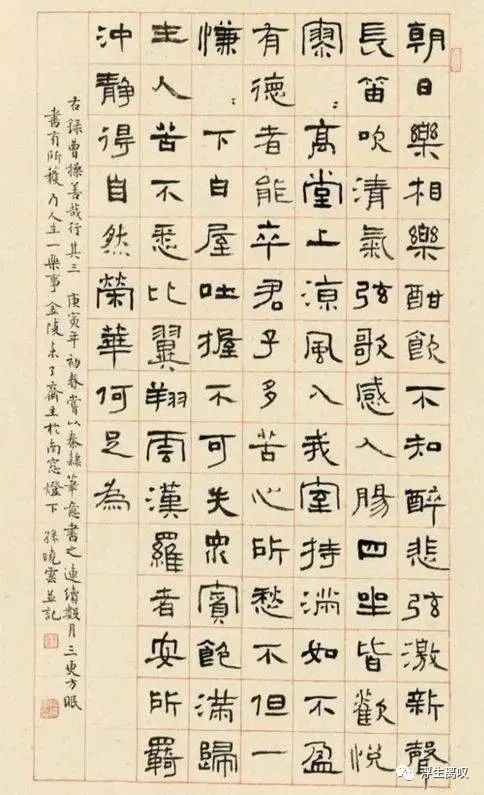 朝日樂相樂酣飲不知醉悲弦激新聲
長笛吹清氣弦歌感人腸四坐皆歡悅
寥:高堂上涼風入我室持滿如不盈
有德者能卒君子多苦心所愁不但一
慊:下白屋吐握不可失眾賓飽滿歸
主人苦不悉比翼翔雲漢羅者安所羈
沖靜得自然榮華何足為
右録曹操善哉行其三 庚寅年初春嘗以秦隸筆意書之連續數月三更方眠
書有所獲乃人生一樂事金陵未了齋主於南窗燈下 孫曉雲並記
浮生离叹